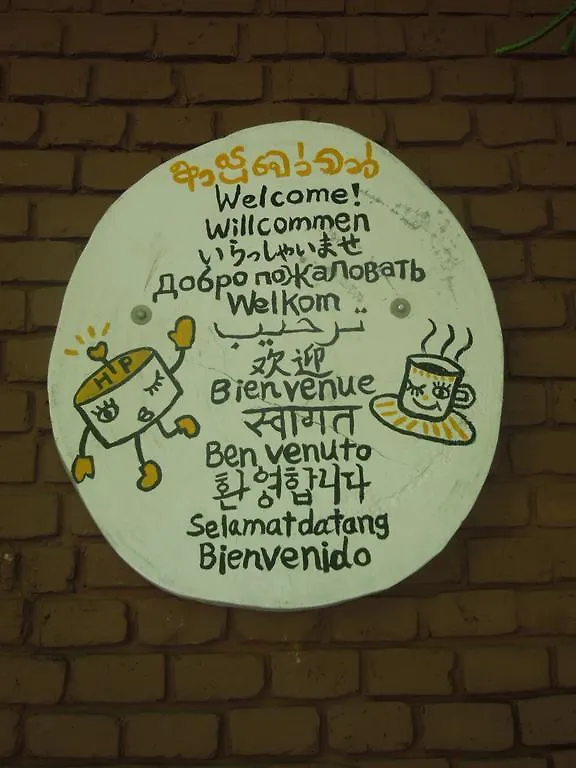 ආයුබෝවන්
Welcome!
Willcommen
いらっしゃいませ
Добро пожаловать
Welkom
ترحيب
欢迎
Bienvenue
स्वागत
Benvenuto
환영합니다
Selamat datang
Bienvenido
HP
B